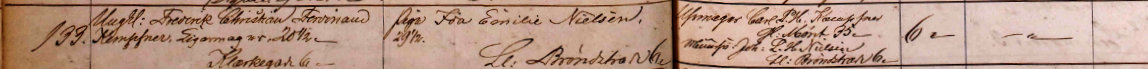 133. Ungk: Frederik Christian Ferdinand
Kempfner. Cigarmager. 20 ½
Klerkegade 6
Pige Ida Emilie Nielsen.
29 ½.
Ll: Brøndstræde 6
Urmager Carl L. H. Kempfner
Gl: Mønt 35
Joh: L. H. Nielsen
Ll: Brøndstræde 6
6